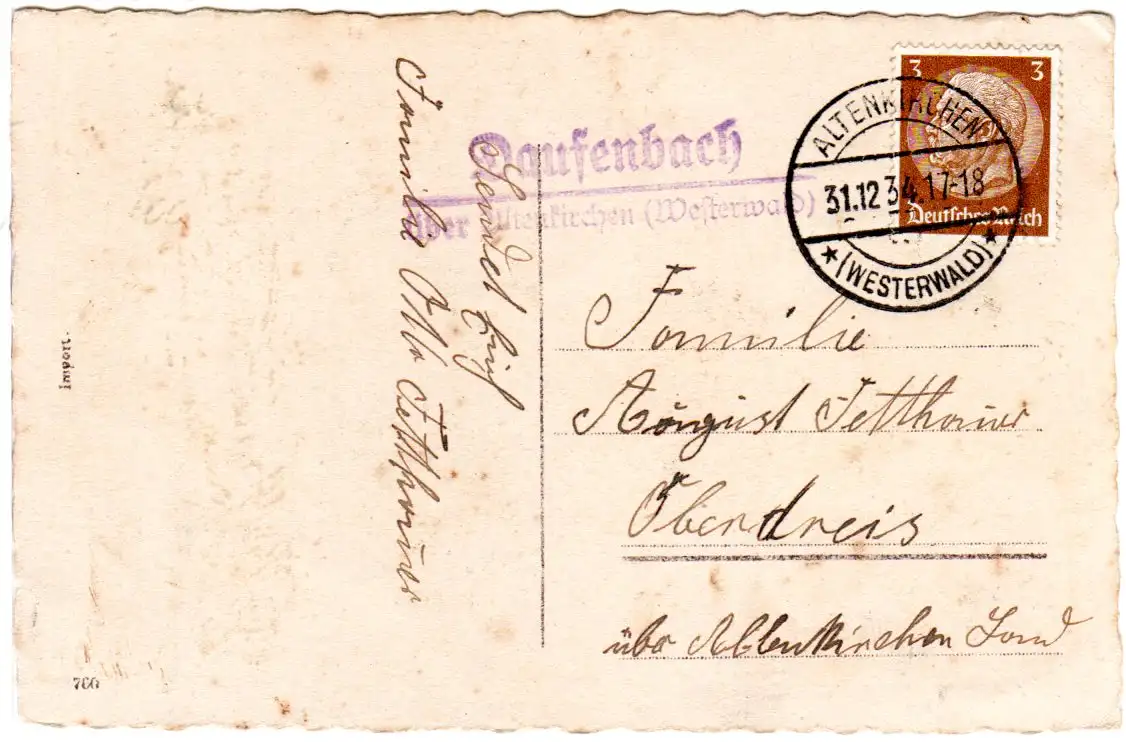 Sendet Euch
Familie Otto Fetthauer
Import.
760
Laufenbach
über Altenkirchen (Westerwald)
ALTENKIRCHEN
31.12 34.17-18
★ (WESTERWALD) ★
3 3
Deutsches Reich
Familie
August Fetthauer
Oberdreis
über Altenkirchen Land